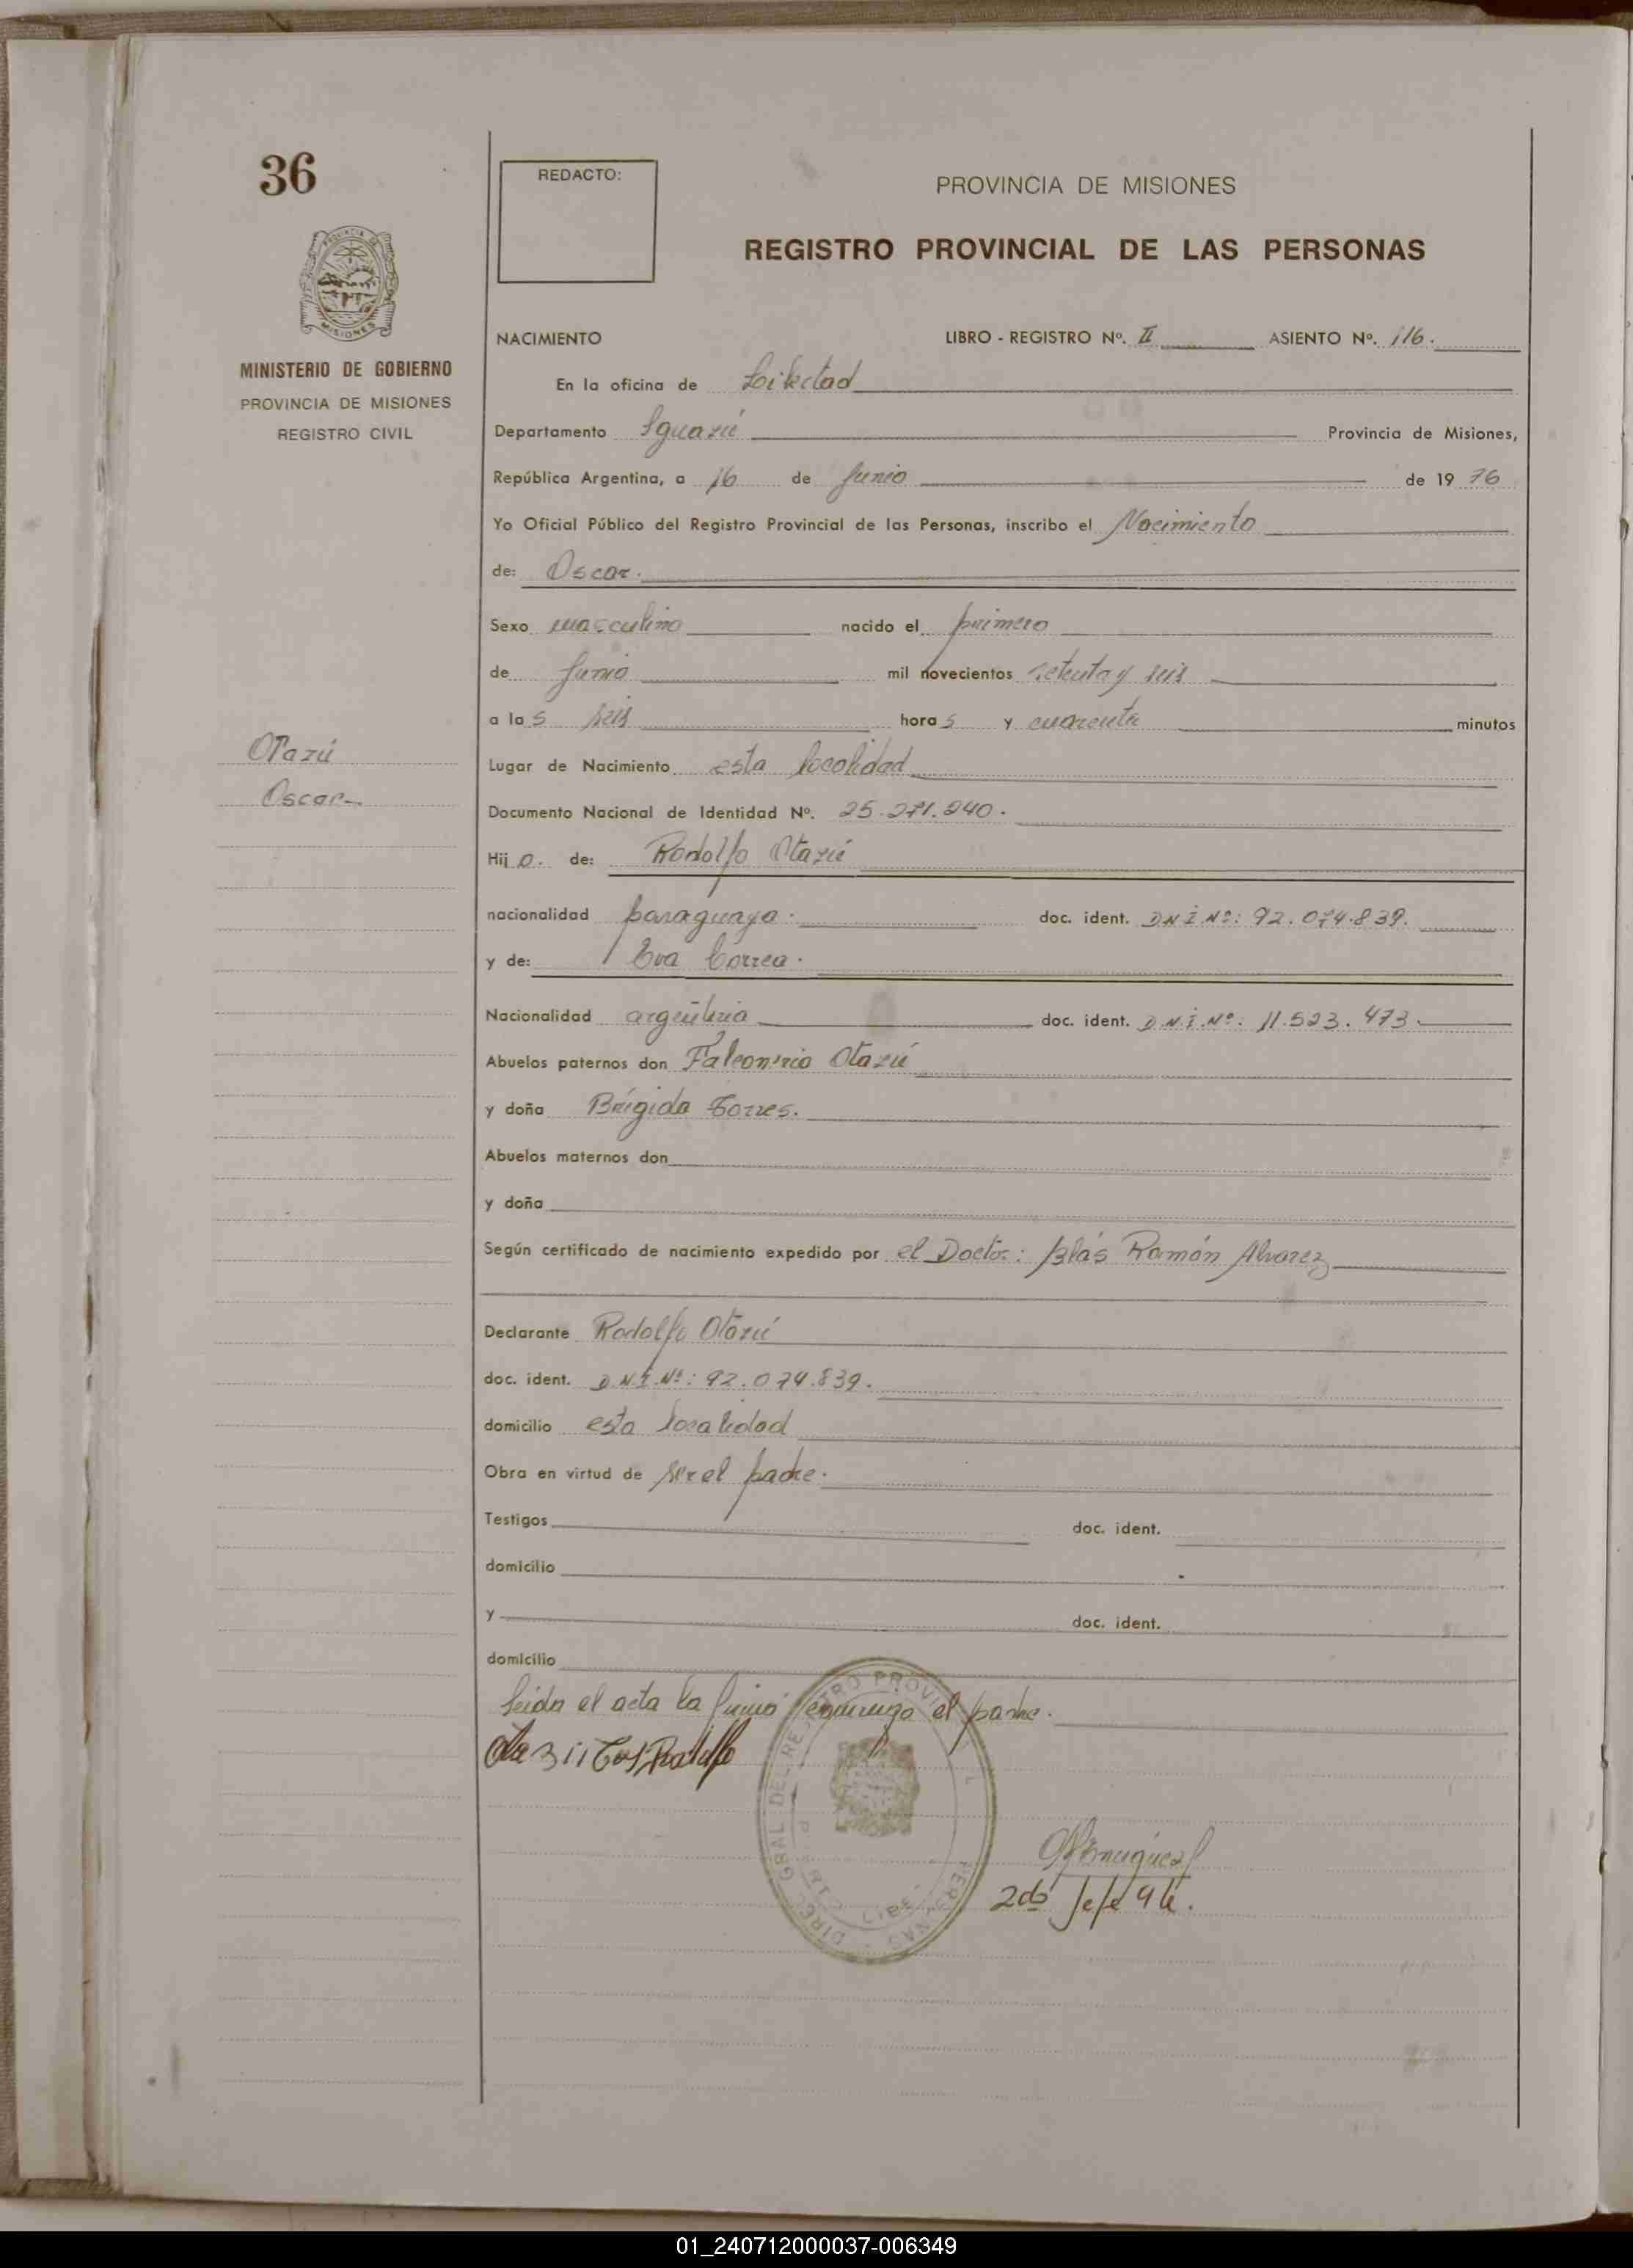 36
REDACTO:
PROVINCIA DE MISIONES
REGISTRO PROVINCIAL DE LAS PERSONAS
MISIONES
MINISTERIO DE GOBIERNO
PROVINCIA DE MISIONES
REGISTRO CIVIL
NACIMIENTO LIBRO - REGISTRO Nº. II ASIENTO Nº. 116.
En la oficina de Libertad
Departamento Iguazú Provincia de Misiones,
República Argentina, a 16 de Junio de 19 76
Yo Oficial Público del Registro Provincial de las Personas, inscribo el Nacimiento
de: Oscar.
Sexo masculino nacido el primero
de Junio mil novecientos setenta y seis
a las seis horas y cuarenta minutos
Otazú
Oscar
Lugar de Nacimiento esta localidad
Documento Nacional de Identidad Nº. 25.271.240.
Hijo. de: Rodolfo Otazú
nacionalidad paraguaya. doc. ident. D.N.I.Nº: 92.074.839.
y de: Eva Correa.
Nacionalidad argentina doc. ident. D.N.I.Nº: 11.523.473.
Abuelos paternos don Otazú
y doña Brígida Torres.
Abuelos maternos don
y doña
Según certificado de nacimiento expedido por el Doctor: Blás Ramón Alvarez
Declarante Rodolfo Otazú
doc. ident. D.N.I.Nº: 92.074.839.
domicilio esta localidad
Obra en virtud de ser el padre.
Testigos doc. ident.
domicilio
y doc. ident.
domicilio
Leida el acta la firmó conmigo el padre.
2do Jefe
01_240712000037-006349